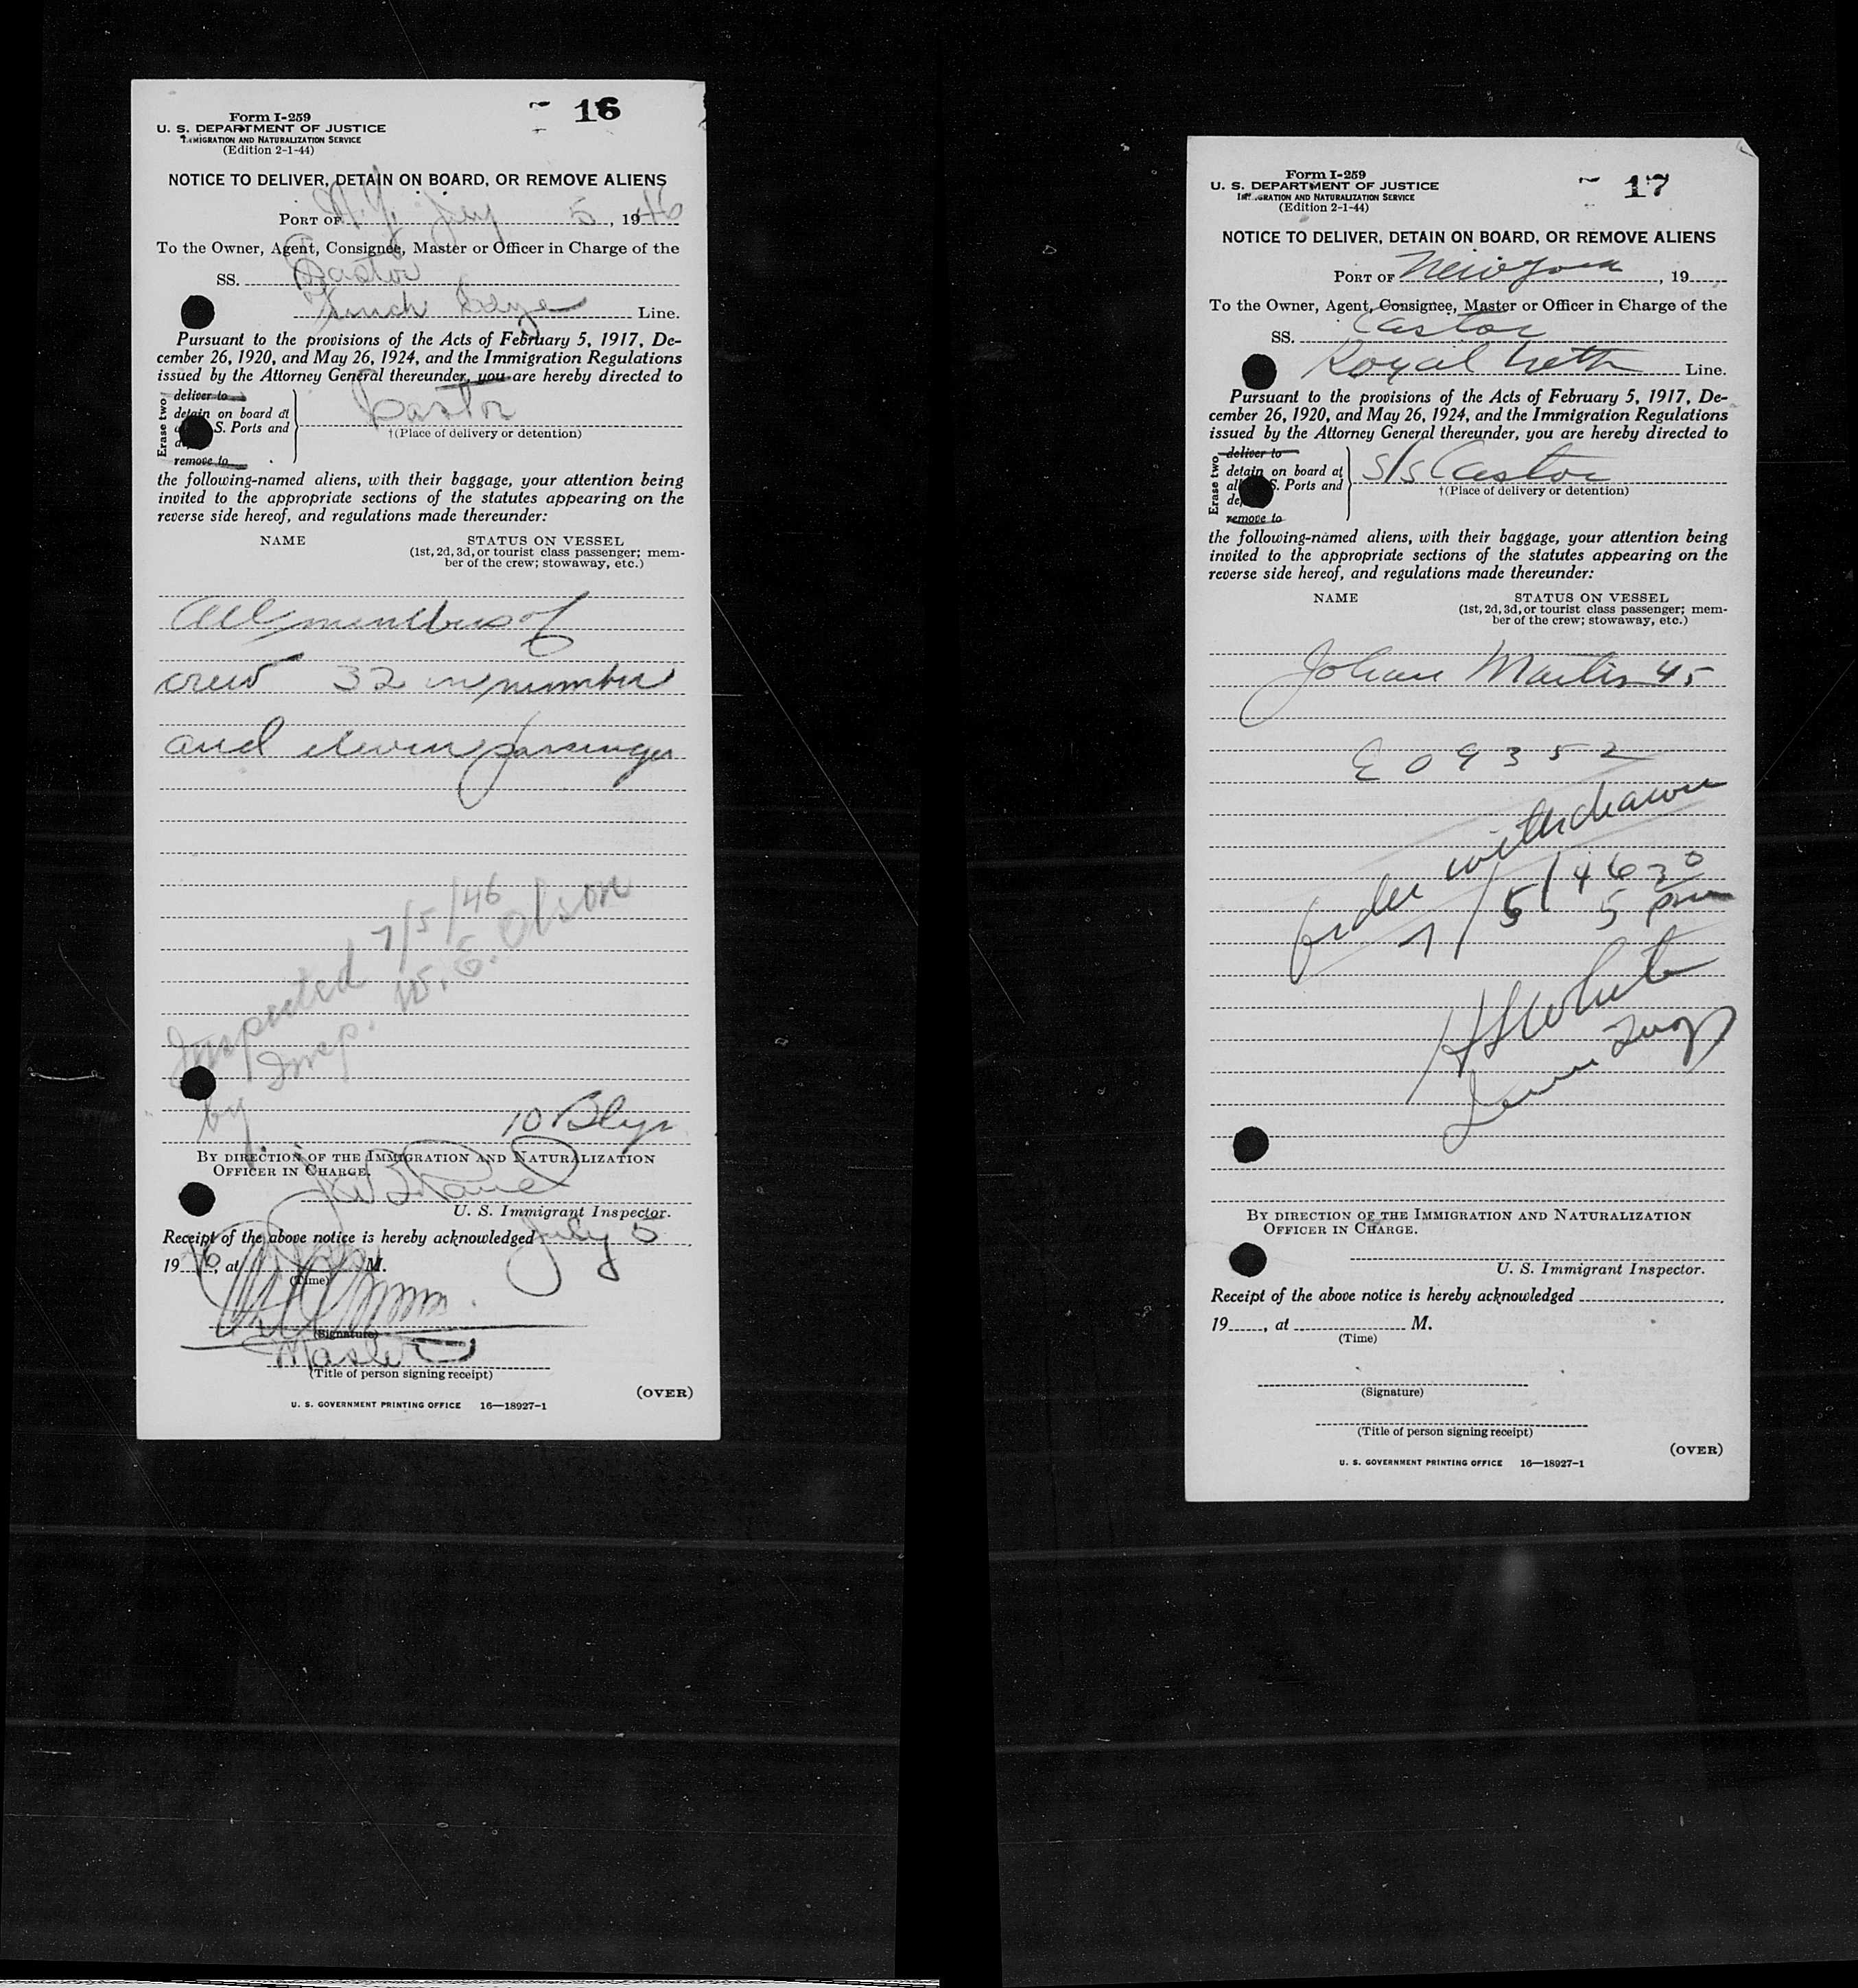 16
Form I-259
U. S. DEPARTMENT OF JUSTICE
IMMIGRATION AND NATURALIZATION SERVICE
(Edition 2-1-44)
NOTICE TO DELIVER, DETAIN ON BOARD, OR REMOVE ALIENS
PORT OF N.Y. July 5, 1946
To the Owner, Agent, Consignee, Master or Officer in Charge of the
SS. Castor
Funch Edye Line.
Pursuant to the provisions of the Acts of February 5, 1917, De-
cember 26, 1920, and May 26, 1924, and the Immigration Regulations
issued by the Attorney General thereunder, you are hereby directed to
Erase two
deliver to
detain on board at
S. Ports and
remove to
Castor
†(Place of delivery or detention)
the following-named aliens, with their baggage, your attention being
invited to the appropriate sections of the statutes appearing on the
reverse side hereof, and regulations made thereunder:
NAME STATUS ON VESSEL
(1st, 2d, 3d, or tourist class passenger; mem-
ber of the crew; stowaway, etc.)
All members of
crew 32 in number
and eleven passenger
Inspected 7/5/46
by Insp. W. E. Olson
10
BY DIRECTION OF THE IMMIGRATION AND NATURALIZATION
OFFICER IN CHARGE.
U. S. Immigrant Inspector.
Receipt of the above notice is hereby acknowledged July 5
1946, at M.
(Time)
(Signature)
Master
(Title of person signing receipt)
(OVER)
U. S. GOVERNMENT PRINTING OFFICE 16—18927-1
17
Form I-259
U. S. DEPARTMENT OF JUSTICE
IMMIGRATION AND NATURALIZATION SERVICE
(Edition 2-1-44)
NOTICE TO DELIVER, DETAIN ON BOARD, OR REMOVE ALIENS
PORT OF New York, 19
To the Owner, Agent, Consignee, Master or Officer in Charge of the
SS. Castor
Royal Neth Line.
Pursuant to the provisions of the Acts of February 5, 1917, De-
cember 26, 1920, and May 26, 1924, and the Immigration Regulations
issued by the Attorney General thereunder, you are hereby directed to
Erase two
deliver to
detain on board at
all S. Ports and
remove to
S/S Castor
†(Place of delivery or detention)
the following-named aliens, with their baggage, your attention being
invited to the appropriate sections of the statutes appearing on the
reverse side hereof, and regulations made thereunder:
NAME STATUS ON VESSEL
(1st, 2d, 3d, or tourist class passenger; mem-
ber of the crew; stowaway, etc.)
Johan Martis 45
E 09352
Order withdrawn
7/5/46 5 30 pm
H S White
Insp
BY DIRECTION OF THE IMMIGRATION AND NATURALIZATION
OFFICER IN CHARGE.
U. S. Immigrant Inspector.
Receipt of the above notice is hereby acknowledged
19, at M.
(Time)
(Signature)
(Title of person signing receipt)
(OVER)
U. S. GOVERNMENT PRINTING OFFICE 16—18927-1